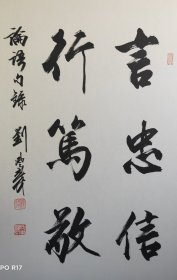 言忠信
行篤敬
論語句錄
劉
PO R17